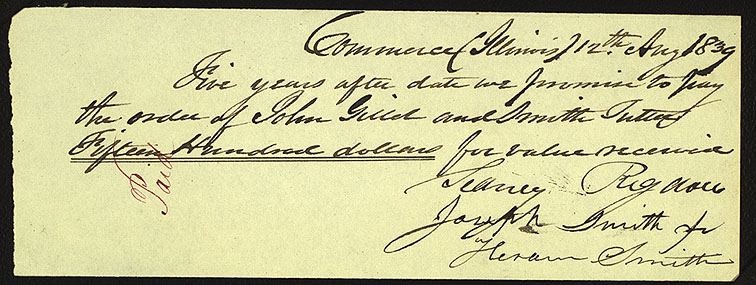 Commerce (Illinois) 12th Aug 1839
Five years after date we promise to pay
the order of John Gillet and Smith Tuttle
Fifteen Hundred dollars for value received
Paid
Sidney Rigdon
Joseph Smith Jr
Hiram Smith